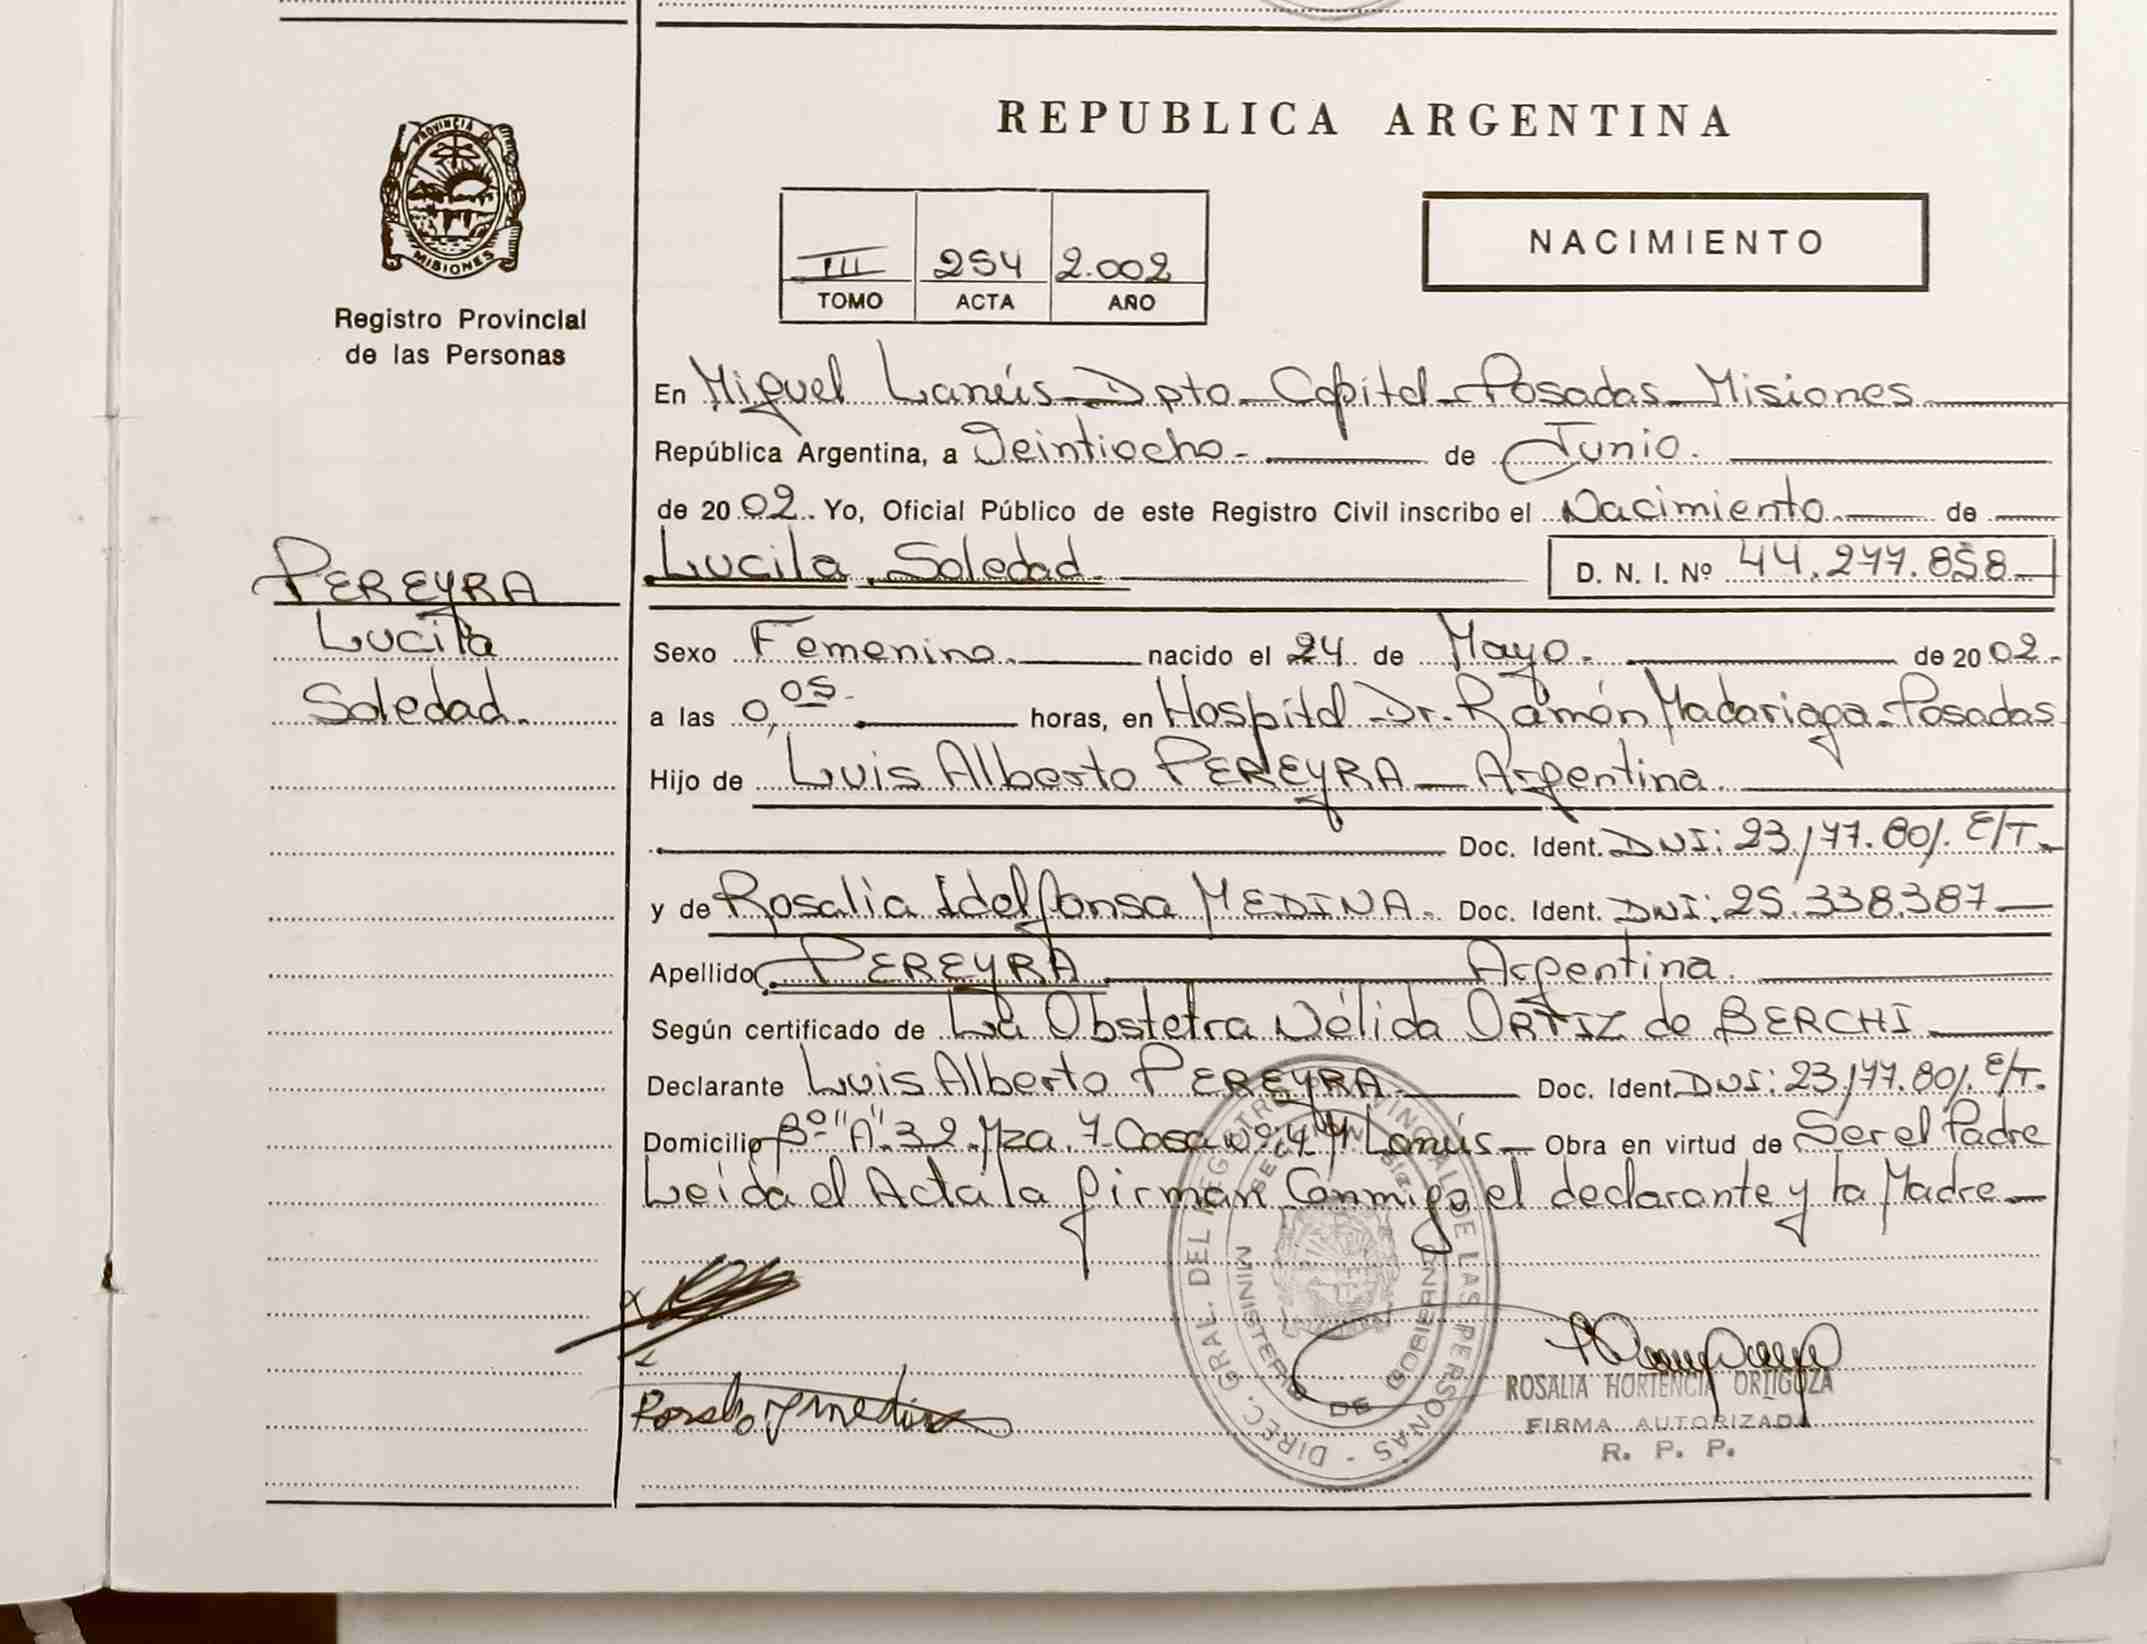 REPUBLICA ARGENTINA
PROVINCIA DE
MISIONES
Registro Provincial
de las Personas
III 254 2.002
TOMO ACTA AÑO
NACIMIENTO
En Miguel Lanús - Dpto - Capital - Posadas - Misiones
República Argentina, a Veintiocho - de Junio.
de 2002. Yo, Oficial Público de este Registro Civil inscribo el Nacimiento de
PEREYRA
Lucila
Soledad.
Lucila Soledad. D. N. I. Nº 44.277.858
Sexo Femenino. nacido el 24 de Mayo. de 2002.
a las 0,05. horas, en Hospital Dr. Ramón Madariaga - Posadas
Hijo de Luis Alberto PEREYRA - Argentina.
Doc. Ident. DNI: 23.177.801. E/T.
y de Rosalia Idelfonsa MEDINA. Doc. Ident. DNI: 25.338.387
Apellido PEREYRA Argentina.
Según certificado de La Obstetra Nélida ORTIZ de BERCHI
Declarante Luis Alberto PEREYRA. Doc. Ident. DNI: 23.177.801. E/T.
Domicilio Bº "A" 32. Mza. 7. Casa Nº: Lanús - Obra en virtud de Ser el Padre
Leída el Acta la firman Conmigo el declarante y la Madre
DIREC. GRAL. DEL REGISTRO PROVINCIAL DE LAS PERSONAS
MINISTERIO DE GOBIERNO
ROSALIA HORTENCIA ORTIGOZA
FIRMA AUTORIZADA
R. P. P.